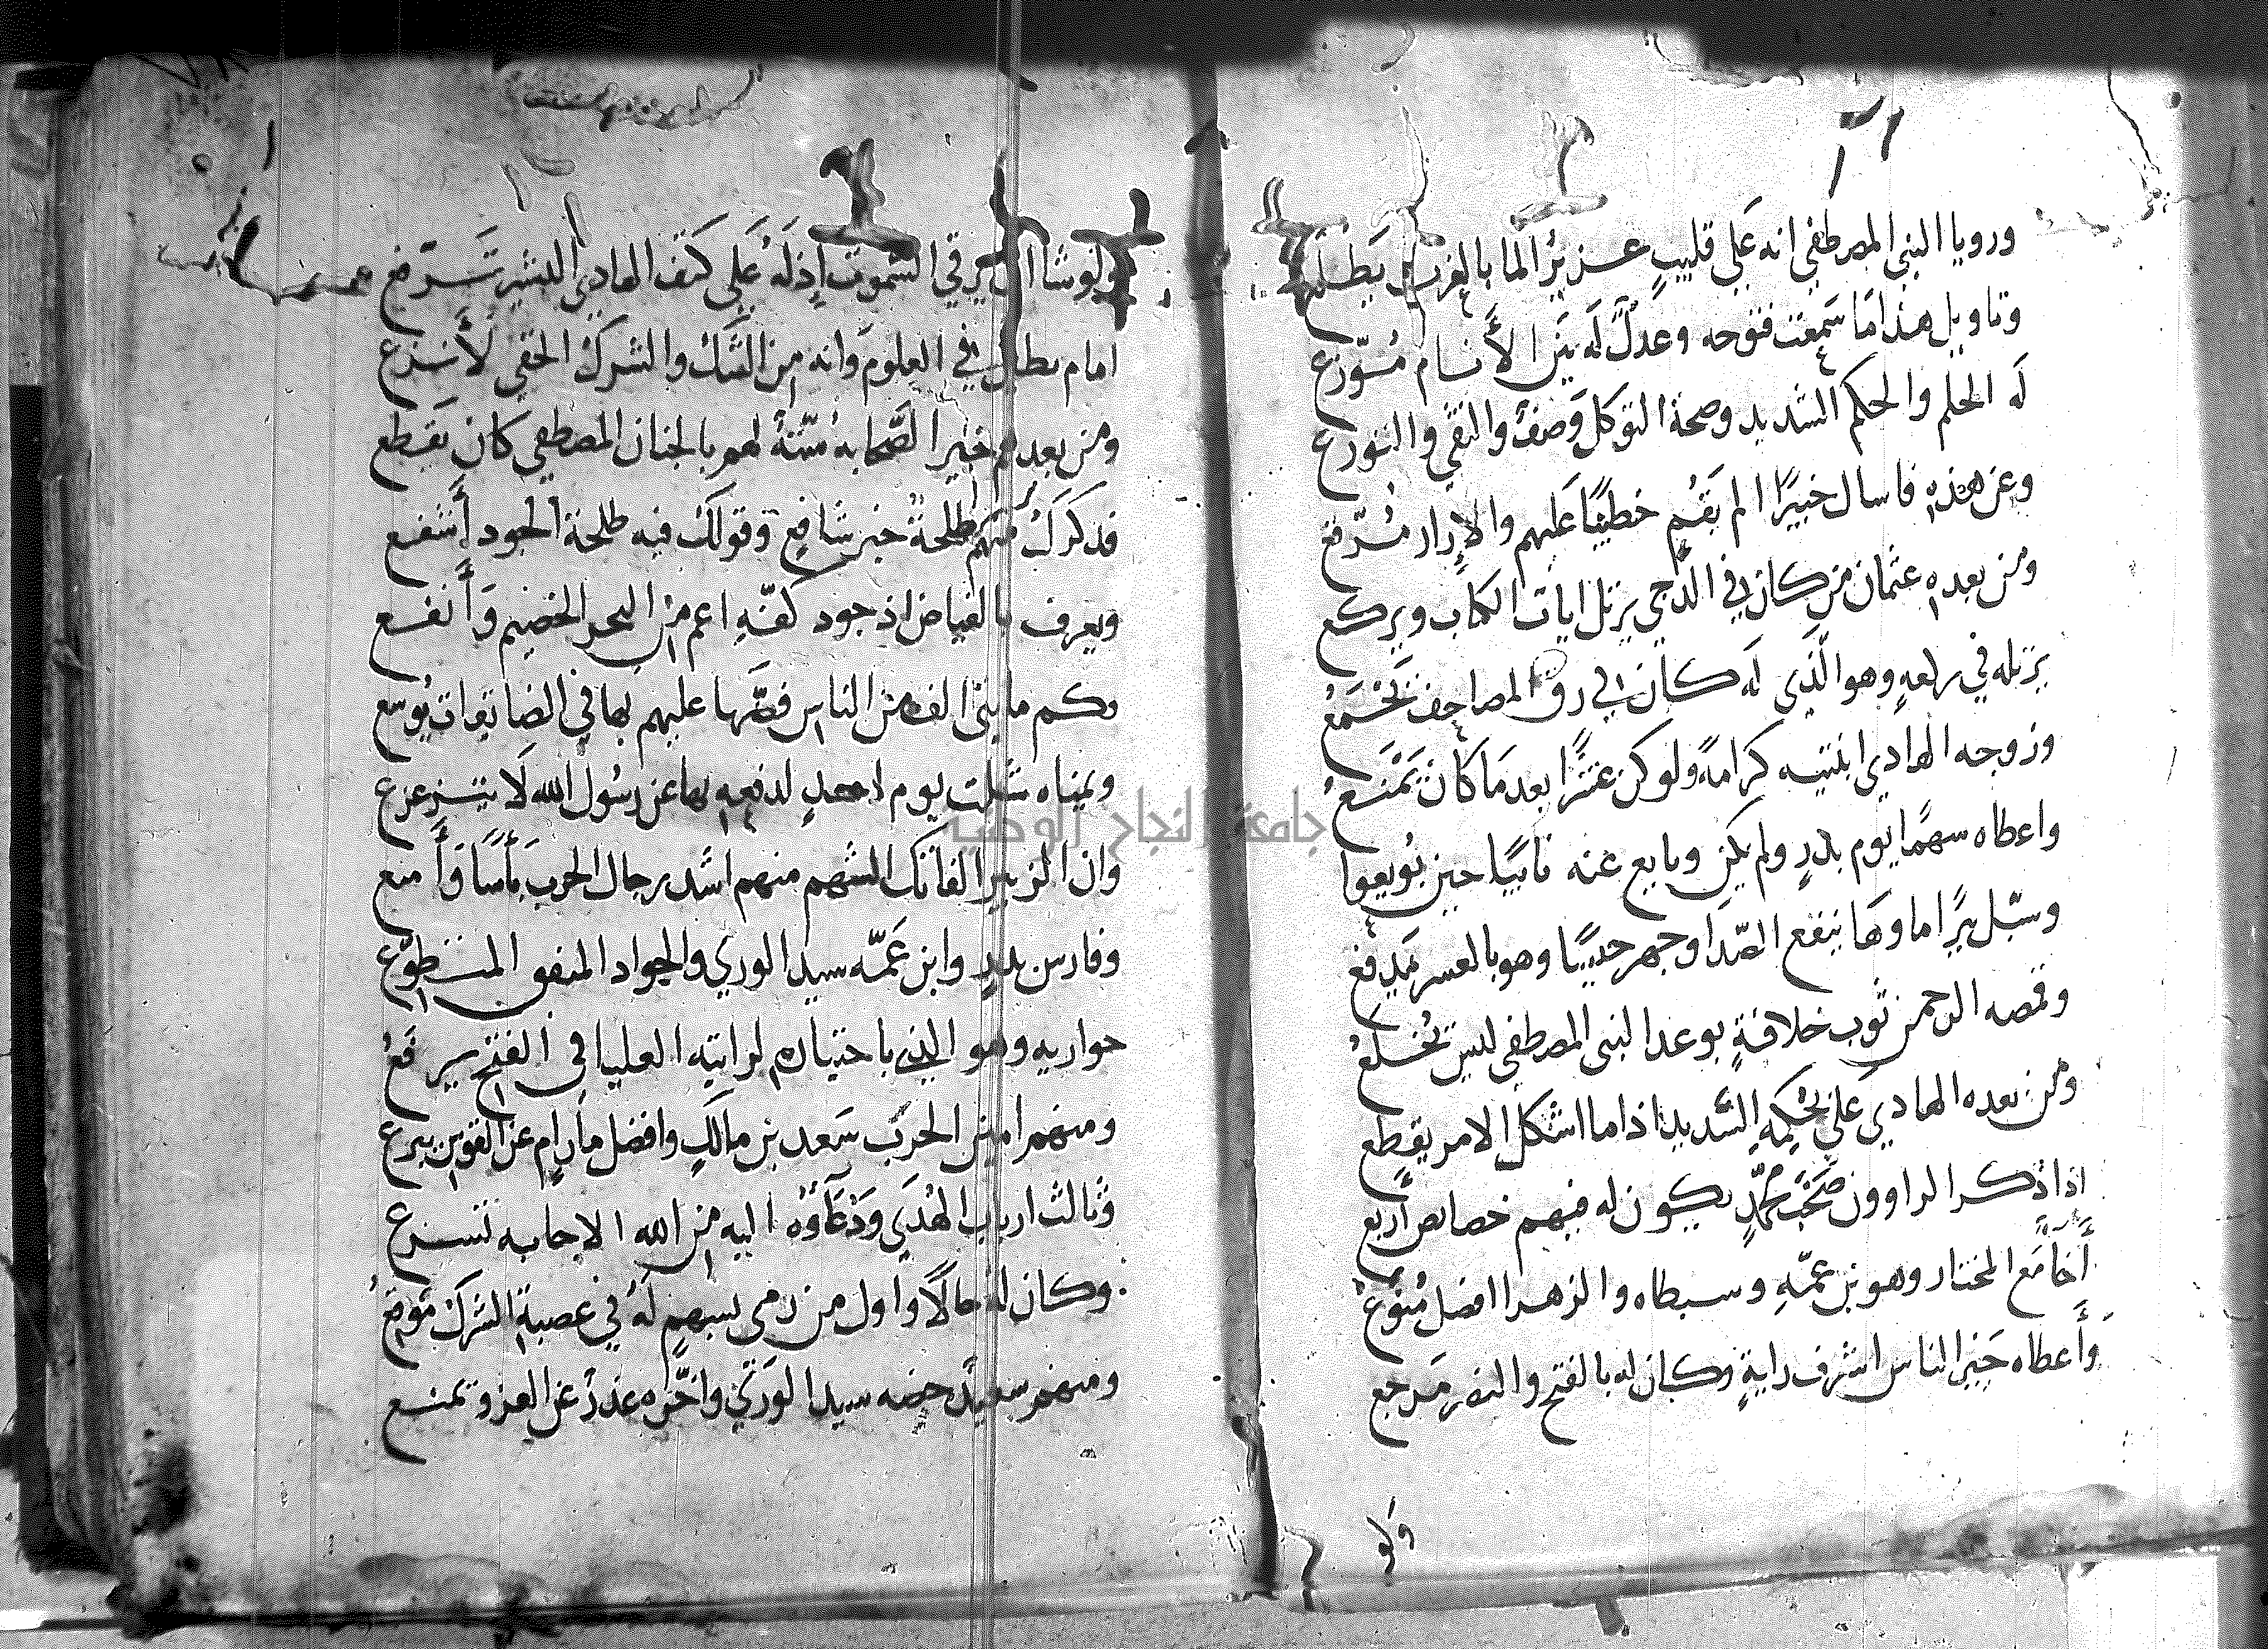 ورويا النبي المصطفى انه على قليب عزيز الما بالغرب يطلع
وتاويل هذا ما سمعت فتوحه وعدل له بين الأنام موزع
له الحلم والحكم الشديد وصحة التوكل وصف والتقى والتورع
وعن هذه فاسال خبيرًا الم يقم خطيبًا عليهم والإزار مرقع
ومن بعده عثمان من كان في الدجى يرتل ايات الكتاب ويركع
يرتله في ركعةٍ وهو الذي له كان في رق المصاحف تجمع
وزوجه الهادي ابنتيه كرامةً ولو كن عشرًا بعد ما كان يمنع
واعطاه سهمًا يوم بدرٍ ولم يكن وبايع عنه نائبًا حين بويعوا
وسبل بيرًا ماوها ينقع الصدا وجهز جيشًا وهو بالعسر مدقع
وقمصه الرحمن ثوب خلافةٍ بوعد النبي المصطفى ليس تخلع
ومن بعده الهادي علي بحكمه الشديد اذا ما اشكل الامر يقطع
اذا ذكر الراوون صحب محمدٍ يكون له فيهم خصايص أربع
أخا مع المختار وهو بن عمه وسبطاه والزهرا افضل منوع
وأعطاه خير الناس اشرف رايةٍ وكان له بالفتح والنصر مرجع
ولو
ولو شا ان يرقى السموت إذ له على كتف الهادي البشير ترفع
امام بطل في العلوم وانه من الشك والشرك الخفي لأنزع
ومن بعدهم خير الصحابه ستةً لهم بالجنان المصطفى كان يقطع
فذكرك منهم طلحةً خير شافع وقولك فيه طلحة الجود أنفع
ويعرف بالفياض اذ جود كفه اعم من البحر الخضم وأنفع
وكم مايتي الف من الناس فضها عليهم بها في الضايقات يوسع
ويمناه شلت يوم احدٍ لدفعه بها عن رسول الله لا يتزعزع
وان الزبير الفاتك الشهم منهم اشد رجال الحرب بأسًا وأمنع
وفارس بدرٍ وابن عمه سيد الورى والجواد المنفق المتطوع
حواريه وهو الذي باختياره لرايته العليا في الفتح يرفع
ومنهم امين الحرب سعد بن مالك وافضل مارام عن القوس ينزع
وثالث ارباب الهدى ودعاؤه اليه من الله الاجابه تسرع
وكان له خالًا واول من رمى بسهم له في عصبة الشرك موقع
ومنهم سعيد خصه سيد الورى واخره عذر عن الغزو تمنع
جامعة النجاح الوطنية